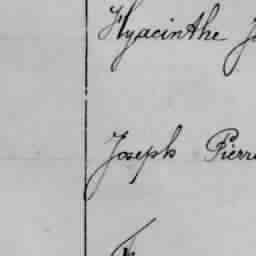 Hyacinthe
Joseph Pierre